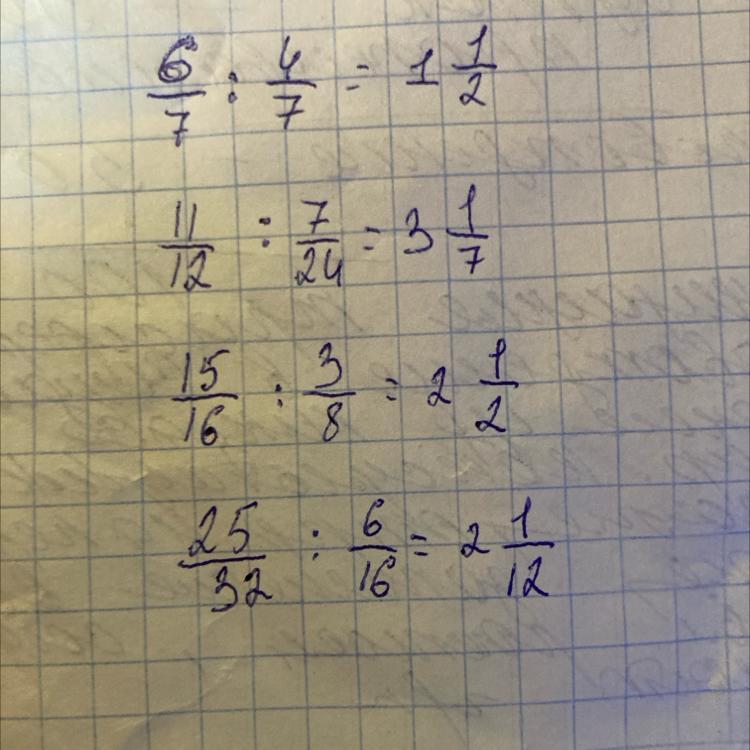 6/7 : 4/7 = 1 1/2
11/12 : 7/24 = 3 1/7
15/16 : 3/8 = 2 1/2
25/32 : 6/16 = 2 1/12